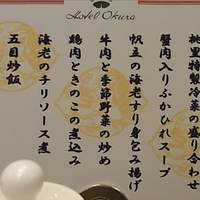 Hotel Okura
桃里特製冷菜の盛り合わせ
蟹肉入りふかひれスープ
帆立の海老すり身包み揚げ
牛肉と季節野菜の炒め
鶏肉ときのこの煮込み
海老のチリソース煮
五目炒飯